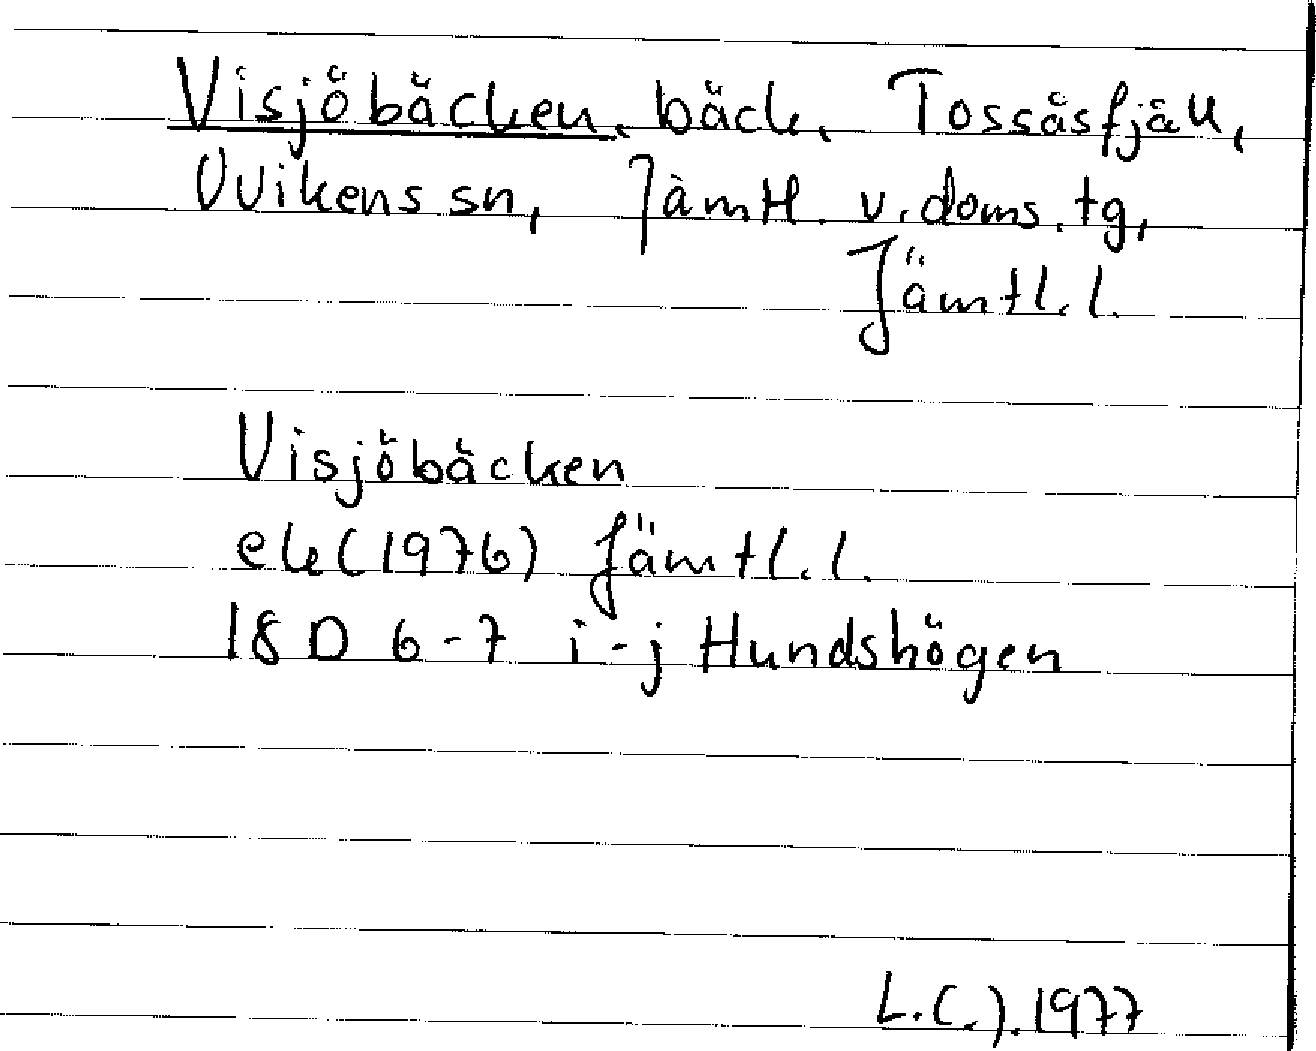 Visjöbäcken, bäck, Tossåsfjäll,
Ovikens sn, Jämtl. v. doms. tg,
Jämtl. l.
Visjöbäcken
ek (1976) Jämtl. l.
18 D 6-7 i-j Hundshögen
L.C.J. 1977